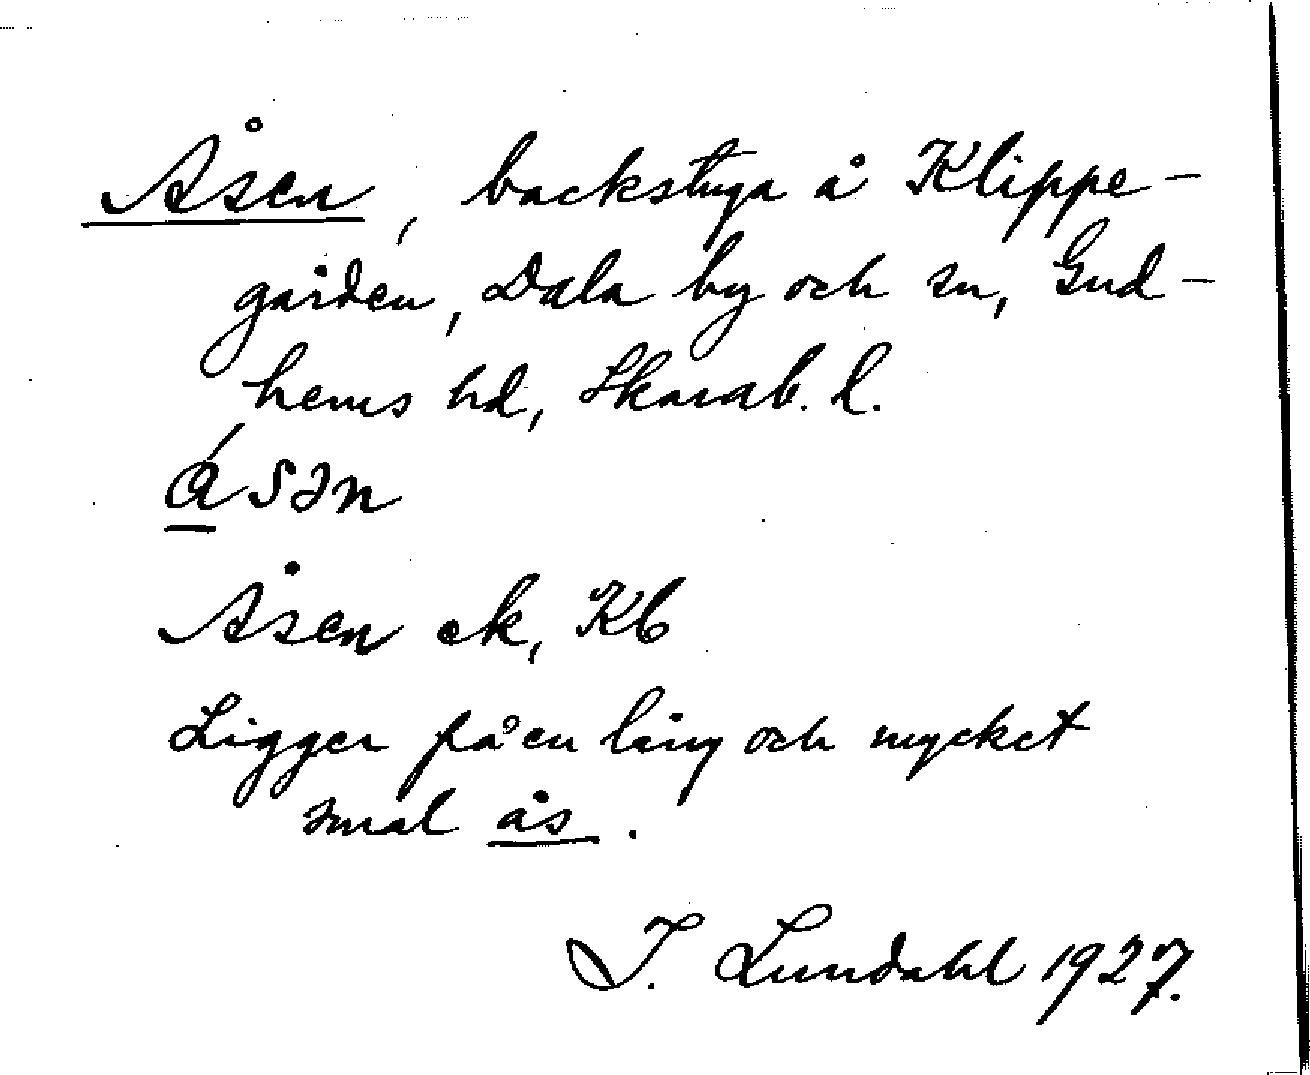 Åsen, backstuga å Klippe-
gården, Dala by och sn, Gud-
hems hd, Skarab. l.
ɑ́sən
Åsen ek, Kb
Ligger på en lång och mycket
smal ås.
I. Lundahl 1927.